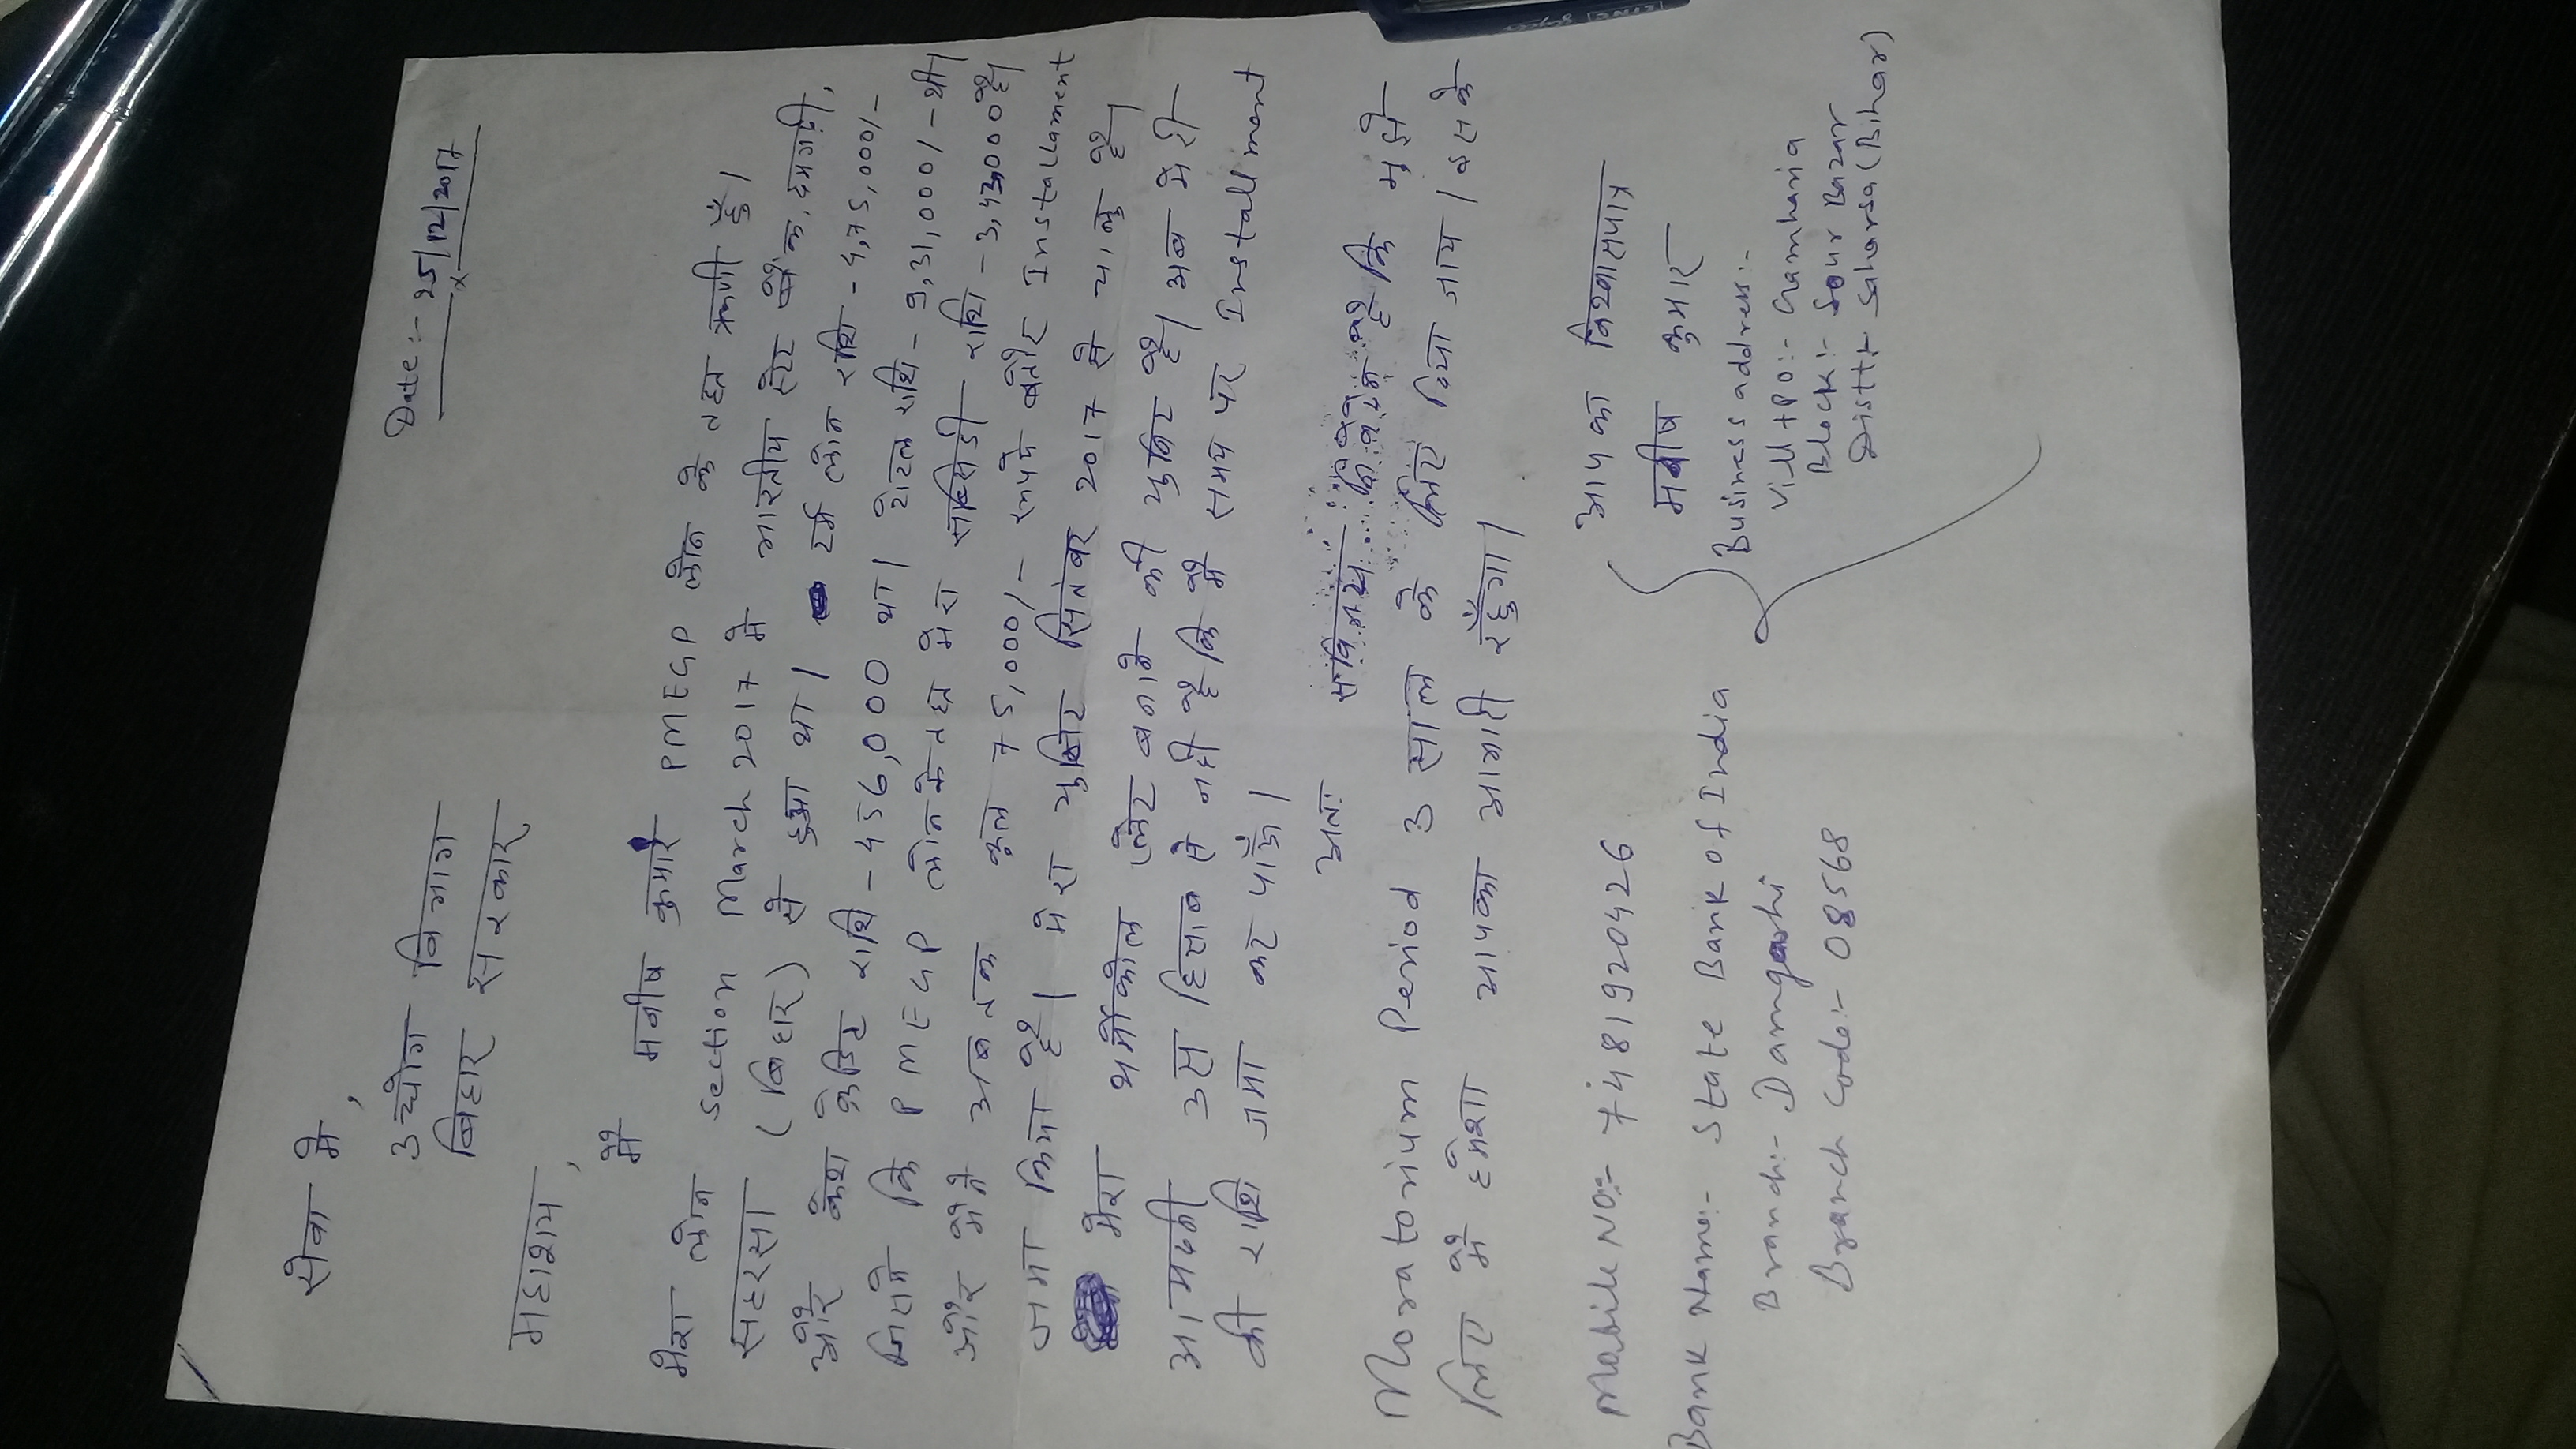 Date:- 25/12/2017
सेवा में,
उद्योग विभाग
बिहार सरकार
महाशय,
मैं मनीष कुमार PMEGP लोन के तहत ऋणी हूँ।
मेरा लोन Section March 2017 में भारतीय स्टेट बैंक, दमगढ़ी,
सहरसा (बिहार) से हुआ था। टर्म लोन राशि - 4,75,000/-
और कैश क्रेडिट राशि - 456,000 था। टोटल राशि - 9,31,000/- थी।
जिसमें कि PMEGP लोन के तहत मेरा सब्सिडी राशि - 3,43000 है।
और मैंने अब तक कुल 75,000/- रूपये बतौर Installament
जमा किया है। मेरा युनिट सितंबर 2017 से चालु है।
मेरा थर्मोकोल प्लेट बनाने की युनिट है। अब मेरी
आमदनी उस हिसाब से नहीं है कि मैं समय पर Installment
की राशि जमा कर पाऊं।
अतः सविनय निवेदन है कि मुझे
Moratorium Period 3 साल के लिए दिया जाय। इसके
लिए मैं हमेशा आपका आभारी रहूँगा।
आपका विश्वासपात्र
मनीष कुमार
Mobile NO:- 7481920426
Business address:-
Bank Name:- State Bank of India
Vill+PO:- Gamharia
Branch:- Damgarhi
Block:- Sour Bazar
Branch Code:- 08568
Distt:- Saharsa (Bihar)